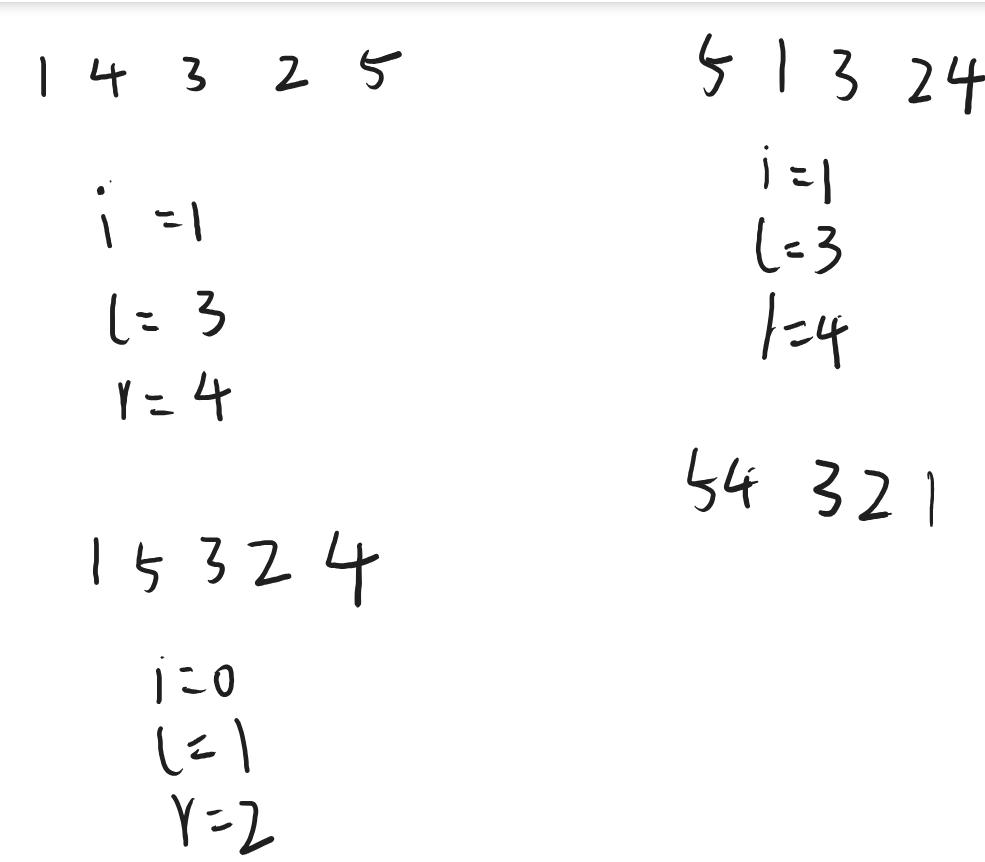 1 4 3 2 5
i = 1
l = 3
r = 4
1 5 3 2 4
i = 0
l = 1
r = 2
5 1 3 2 4
i = 1
l = 3
r = 4
5 4 3 2 1